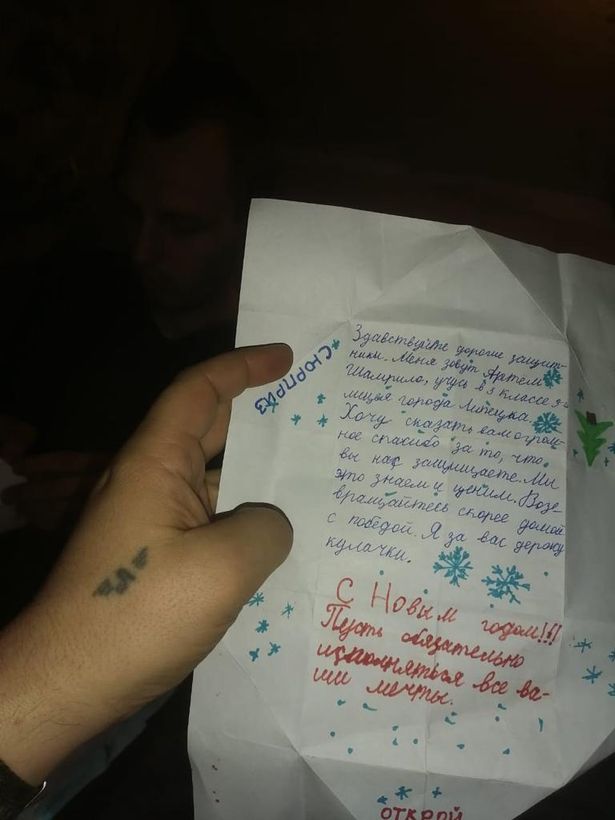 СЮРПРИЗ
Здавствуйте дорогие защит-
ники. Меня зовут Артем
Шамрило, учусь в 3 классе 9-
лицея города Липецка.
Хочу сказать вам огром-
ное спасибо за то, что
вы нас защищаете. Мы
это знаем и ценим. Возв-
вращайтесь скорее домой
с победой. Я за вас держу
кулачки.
С Новым годом!!!
Пусть обязательно
исполняться все ва-
ши мечты.
ОТКРОЙ